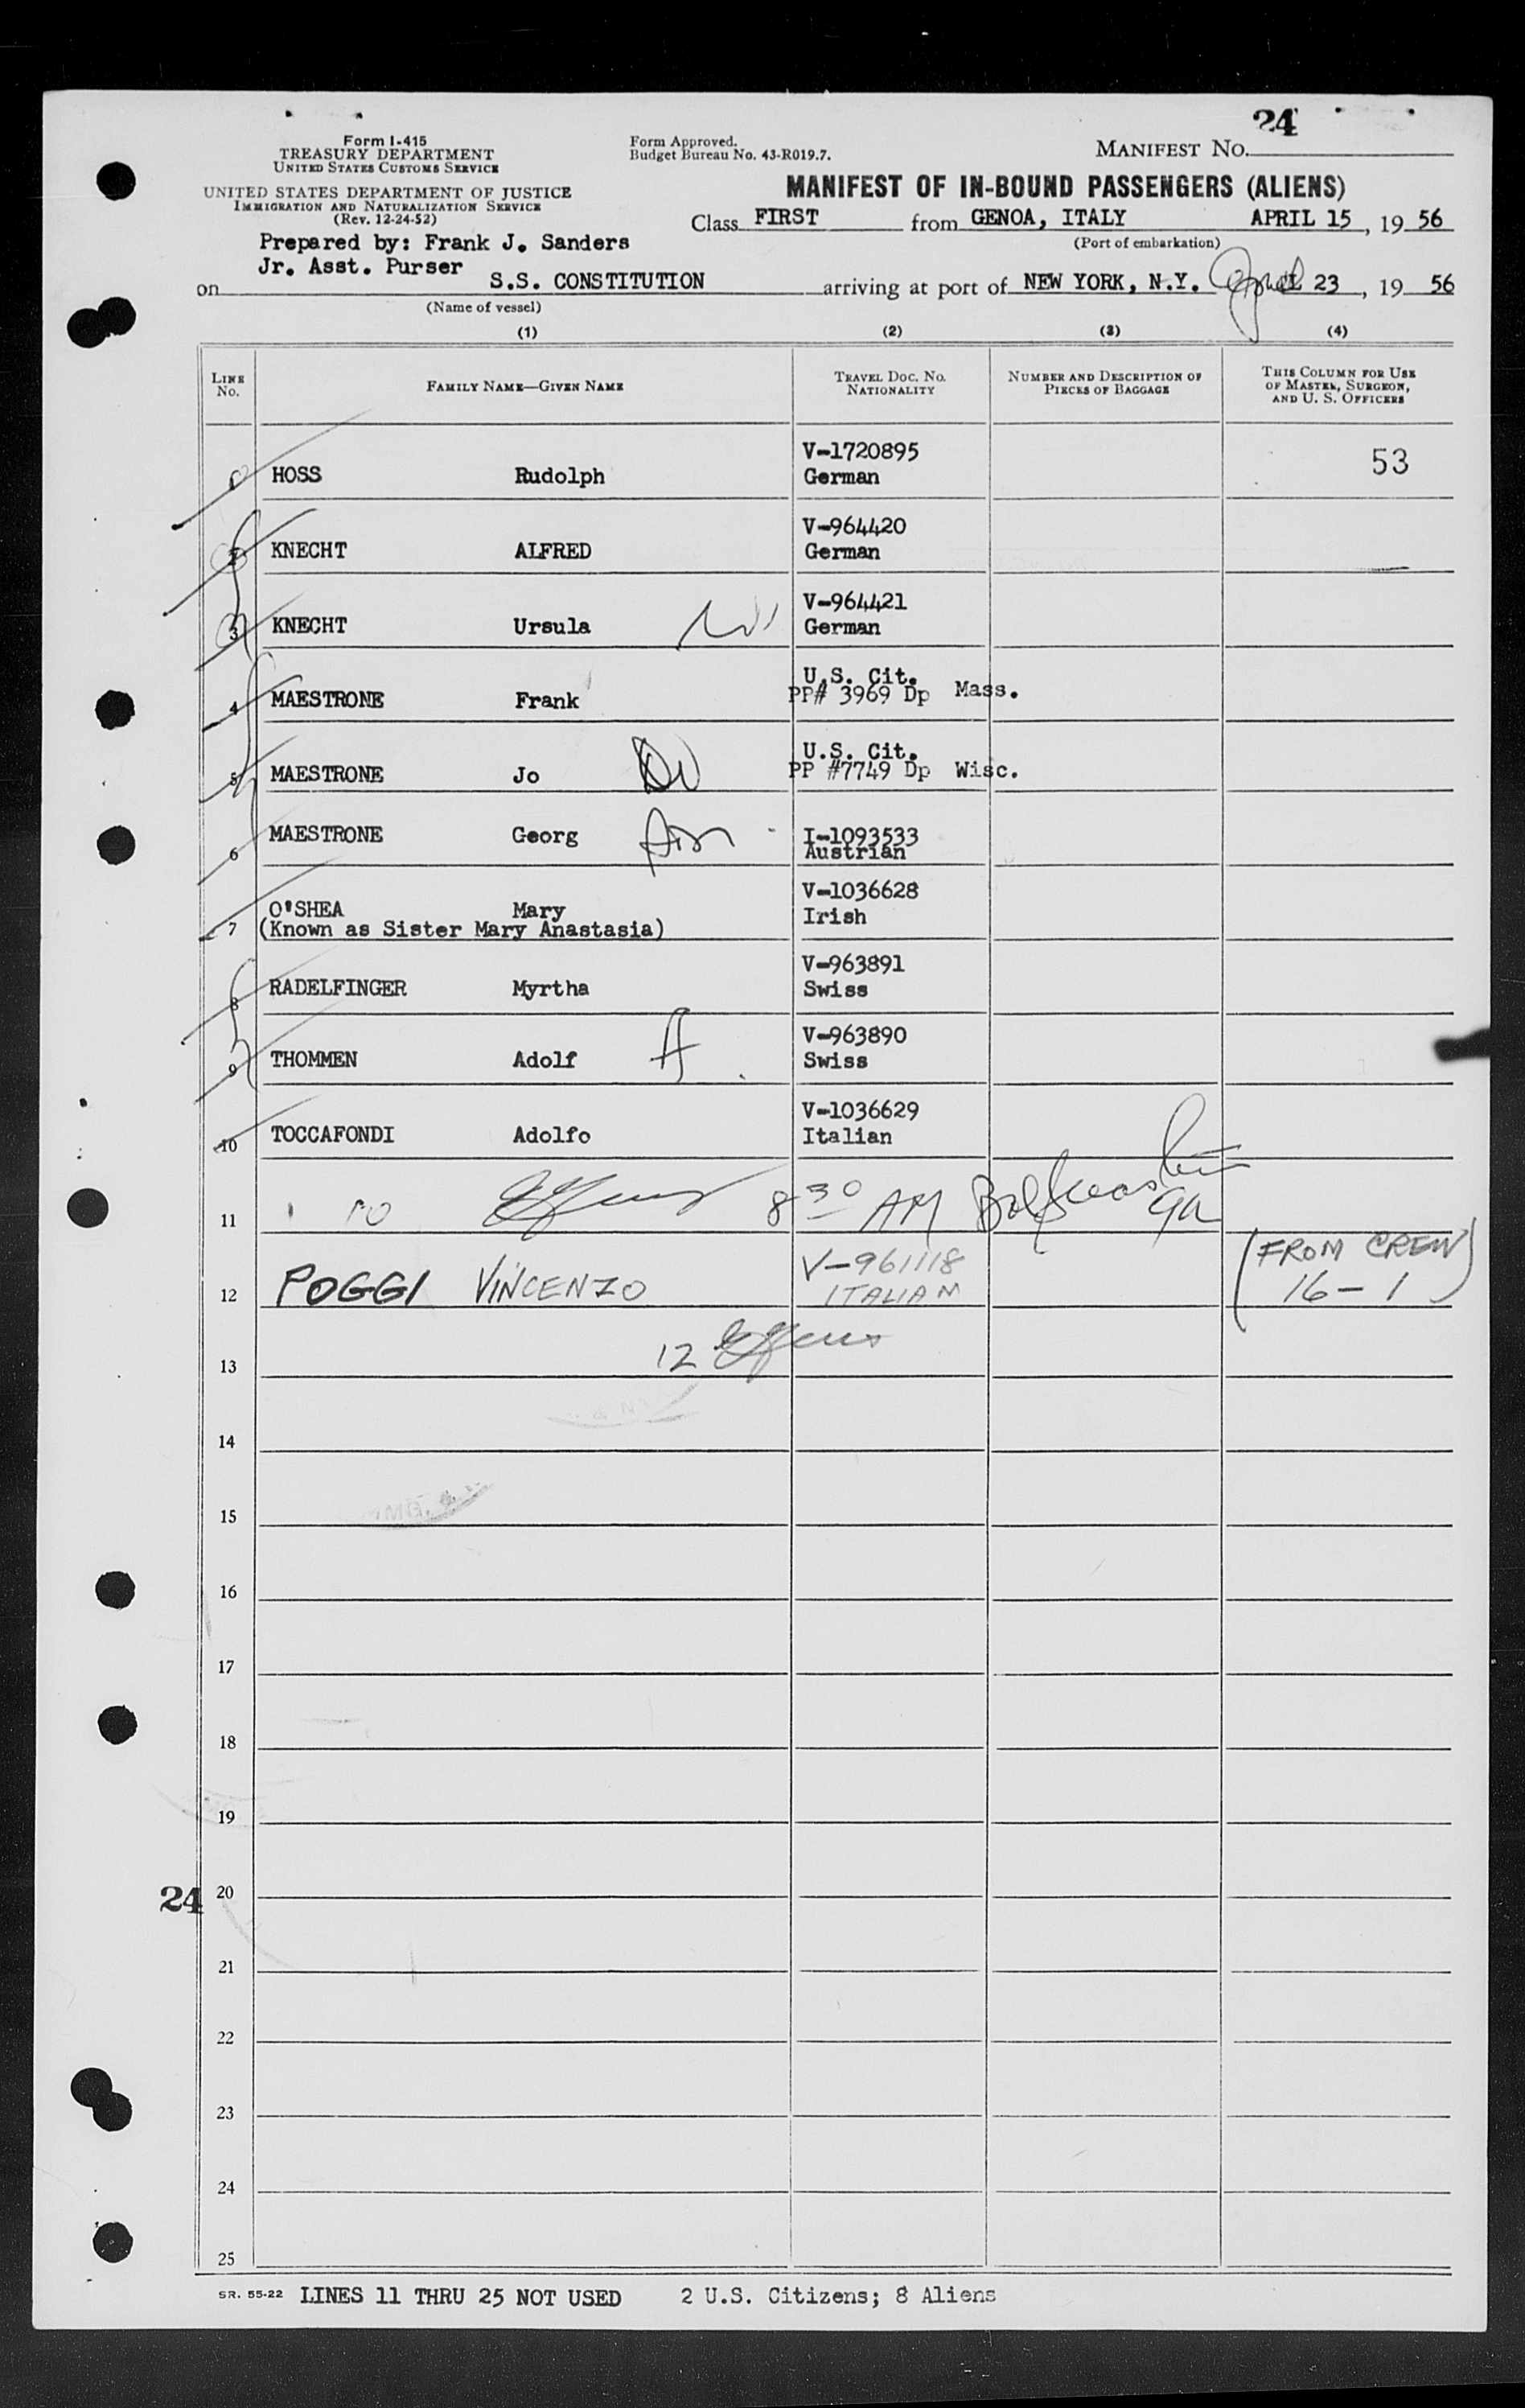 24
Form I-415
TREASURY DEPARTMENT
UNITED STATES CUSTOMS SERVICE
Form Approved.
Budget Bureau No. 43-R019.7.
MANIFEST No.
UNITED STATES DEPARTMENT OF JUSTICE
IMMIGRATION AND NATURALIZATION SERVICE
(Rev. 12-24-52)
MANIFEST OF IN-BOUND PASSENGERS (ALIENS)
Class FIRST from GENOA, ITALY APRIL 15, 19 56
(Port of embarkation)
Prepared by: Frank J. Sanders
Jr. Asst. Purser
on S.S. CONSTITUTION arriving at port of NEW YORK, N.Y. April 23, 19 56
(Name of vessel)
(1) (2) (3) (4)
LINE No. FAMILY NAME—GIVEN NAME TRAVEL DOC. NO. NATIONALITY NUMBER AND DESCRIPTION OF PIECES OF BAGGAGE THIS COLUMN FOR USE OF MASTER, SURGEON, AND U. S. OFFICERS
V-1720895 53
HOSS Rudolph German
V-964420
2 KNECHT ALFRED German
V-964421
3 KNECHT Ursula German
U.S. Cit.
4 MAESTRONE Frank PP# 3969 Dp Mass.
U.S. Cit.
5 MAESTRONE Jo PP #7749 Dp Wisc.
6 MAESTRONE Georg I-1093533
Austrian
V-1036628
O'SHEA Mary Irish
7 (Known as Sister Mary Anastasia)
V-963891
8 RADELFINGER Myrtha Swiss
V-963890
9 THOMMEN Adolf Swiss
V-1036629
10 TOCCAFONDI Adolfo Italian
11 8 30 AM
12 POGGI VINCENZO V-961118 (FROM CREW)
ITALIAN 16-1
13 12
14
15
16
17
18
19
24 20
21
22
23
24
25
SR. 55-22 LINES 11 THRU 25 NOT USED 2 U.S. Citizens; 8 Aliens